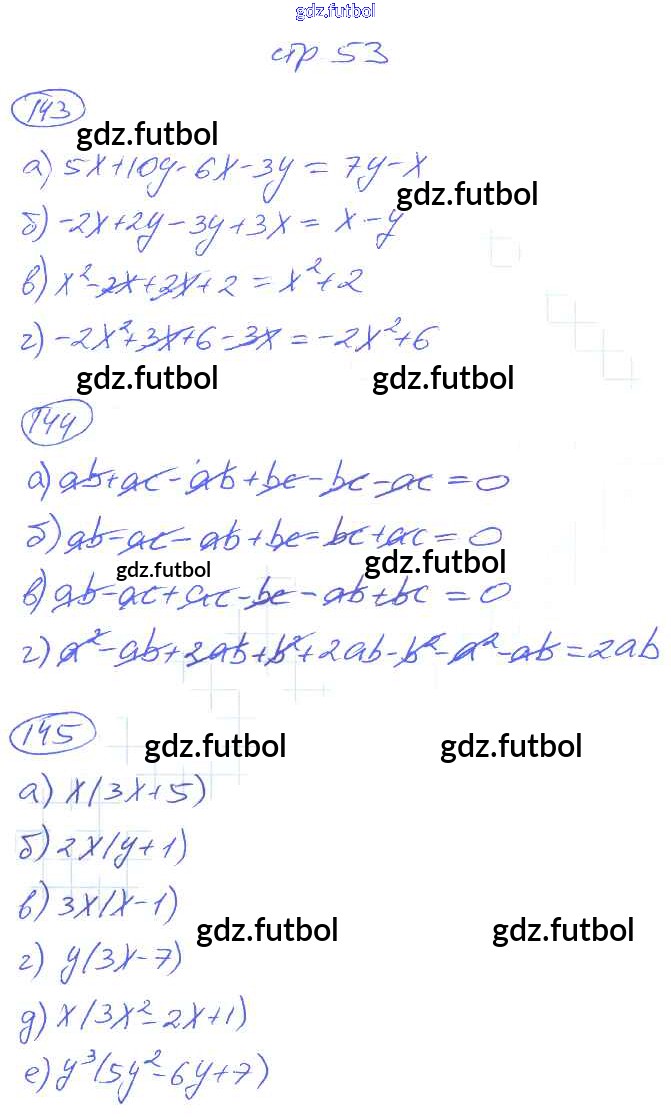 gdz.futbol
стр 53
143
gdz.futbol
а) 5x+10y-6x-3y = 7y-x
gdz.futbol
б) -2x+2y-3y+3x = x-y
в) x²-2x+2x+2 = x²+2
г) -2x²+3x+6-3x = -2x²+6
gdz.futbol gdz.futbol
144
а) ab+ac-ab+bc-bc-ac = 0
б) ab-ac-ab+bc-bc+ac = 0
gdz.futbol gdz.futbol
в) ab-ac+ac-bc-ab+bc = 0
г) a²-ab+2ab+b²+2ab-b²-a²-ab = 2ab
145
gdz.futbol gdz.futbol
а) x(3x+5)
б) 2x(y+1)
в) 3x(x-1)
gdz.futbol gdz.futbol
г) y(3x-7)
д) x(3x²-2x+1)
е) y³(5y²-6y+7)